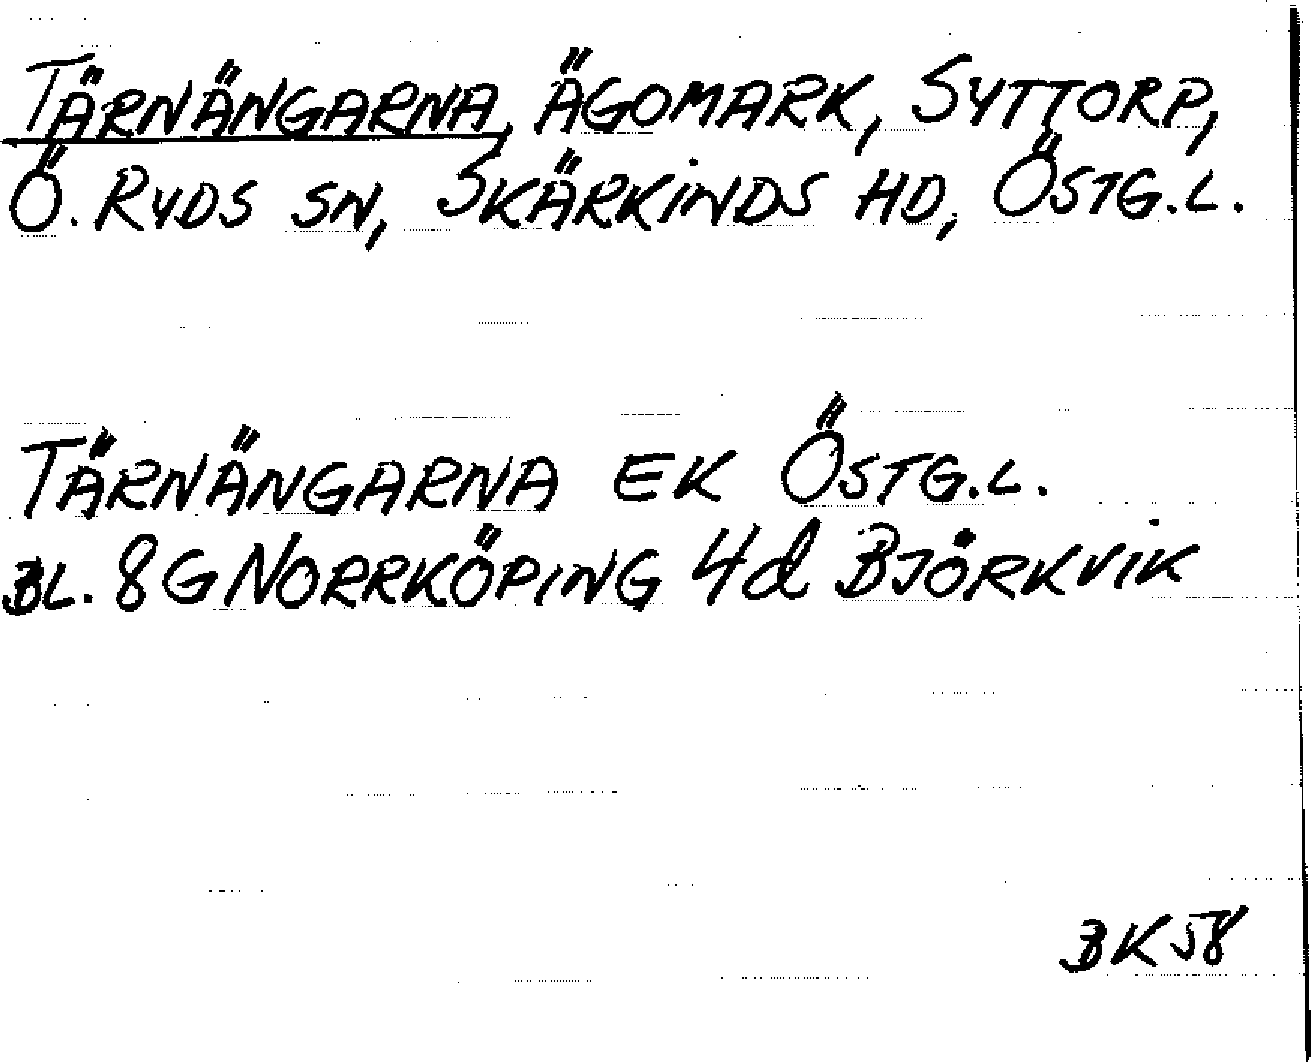 TÄRNÄNGARNA, ÄGOMARK, SYTTORP,
Ö. RYDS SN, SKÄRKINDS HD, ÖSTG.L.
TÄRNÄNGARNA EK ÖSTG.L.
BL. 8G NORRKÖPING 4d BJÖRKVIK
BK 58